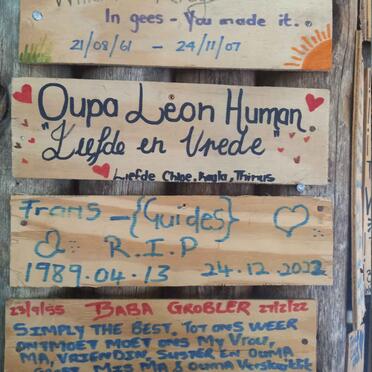 In gees - You made it..
21/08/61 - 24/11/07
Oupa Leon Human
"Liefde en Vrede"
Liefde Chloe, Kayla, Thinus
Frans - {Guides}
R.I.P
1989.04.13 24.12.2022
23/9/55 BABA GROBLER 27/2/22
SIMPLY THE BEST. TOT ONS WEER
ONTMOET MOET ONS MY VROU,
MA, VRIENDIN, SUSTER EN OUMA
MIS MA & OUMA